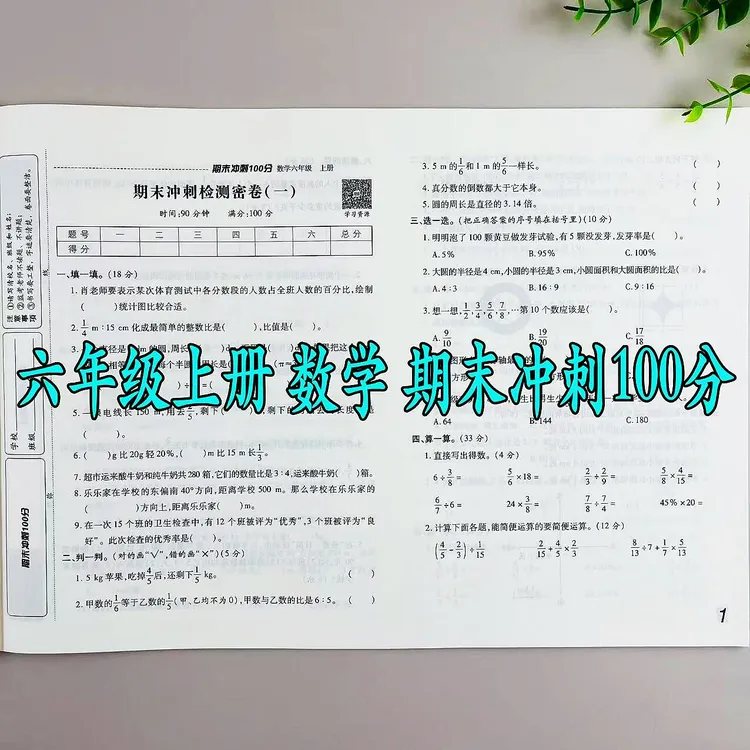 期末冲刺100分 数学六年级 上册
期末冲刺检测密卷(一)
时间:90分钟 满分:100分
学习资源
题号 一 二 三 四 五 六 总分
得分
一、填一填。(18分)
1. 肖老师要表示某次体育测试中各分数段的人数占全班人数的百分比,绘制
( )统计图比较合适。
2. 1/4 m:15 cm 化成最简单的整数比是( ),比值是( )。
六年级上册 数学 期末冲刺100分
5. 电线长 150 m,用去 剩下( )
6. ( )g 比 20 g 轻 20%,( )m 比 15 m 长 1/3。
7. 超市运来酸牛奶和纯牛奶共 280 箱,它们的数量比是 3:4,运来酸牛奶( )箱。
8. 乐乐家在学校的东偏南 40°方向,距离学校 500 m。那么学校在乐乐家的
( )方向上,距离乐乐家( )m。
9. 在一次 15 个班的卫生检查中,有 12 个班被评为“优秀”,3 个班被评为“良
好”。此次检查的优秀率是( )。
二、判一判。(对的画“√”,错的画“×”)(5分)
1. 5 kg 苹果,吃掉 4/5 后,还剩下 1/5 kg。 ( )
2. 甲数的 1/6 等于乙数的 1/5(甲、乙均不为0),甲数与乙数的比是 6:5。 ( )
3. 5 m 的 1/6 和 1 m 的 5/6 一样长。 ( )
4. 真分数的倒数都大于它本身。 ( )
5. 圆的周长是直径的 3.14 倍。 ( )
三、选一选。(把正确答案的序号填在括号里)(10分)
1. 明明泡了 100 颗黄豆做发芽试验,有 5 颗没发芽,发芽率是( )。
A. 5% B. 95% C. 90%
2. 大圆的半径是 4 cm,小圆的半径是 3 cm,小圆面积和大圆面积的比是( )。
A. 4:3 B. 16:9 C. 9:16
3. 想一想,1/2,3/4,5/6,7/8,…第 10 个数应该是( )。
A. 9/10 B. 19/20 C. 17/18
A. 64 B. 144 C. 180
四、算一算。(33分)
1. 直接写出得数。(4分)
6÷3/8= 5/6×18= 2/3÷2/9= 5/8×4/15=
6/7÷6= 24×3/8= 7/8÷7/4= 45%×20=
2. 计算下面各题,能简便运算的要简便运算。(12分)
(4/5-2/3)÷1/15 2/15+4/5×2/3 8/13÷7+1/7×5/13
1
注意事项
①请写清校名、班级和姓名;
②监考老师不读题、不讲题;
③书写要工整、字迹要清楚、卷面要整洁。
学校
班级
期末冲刺100分